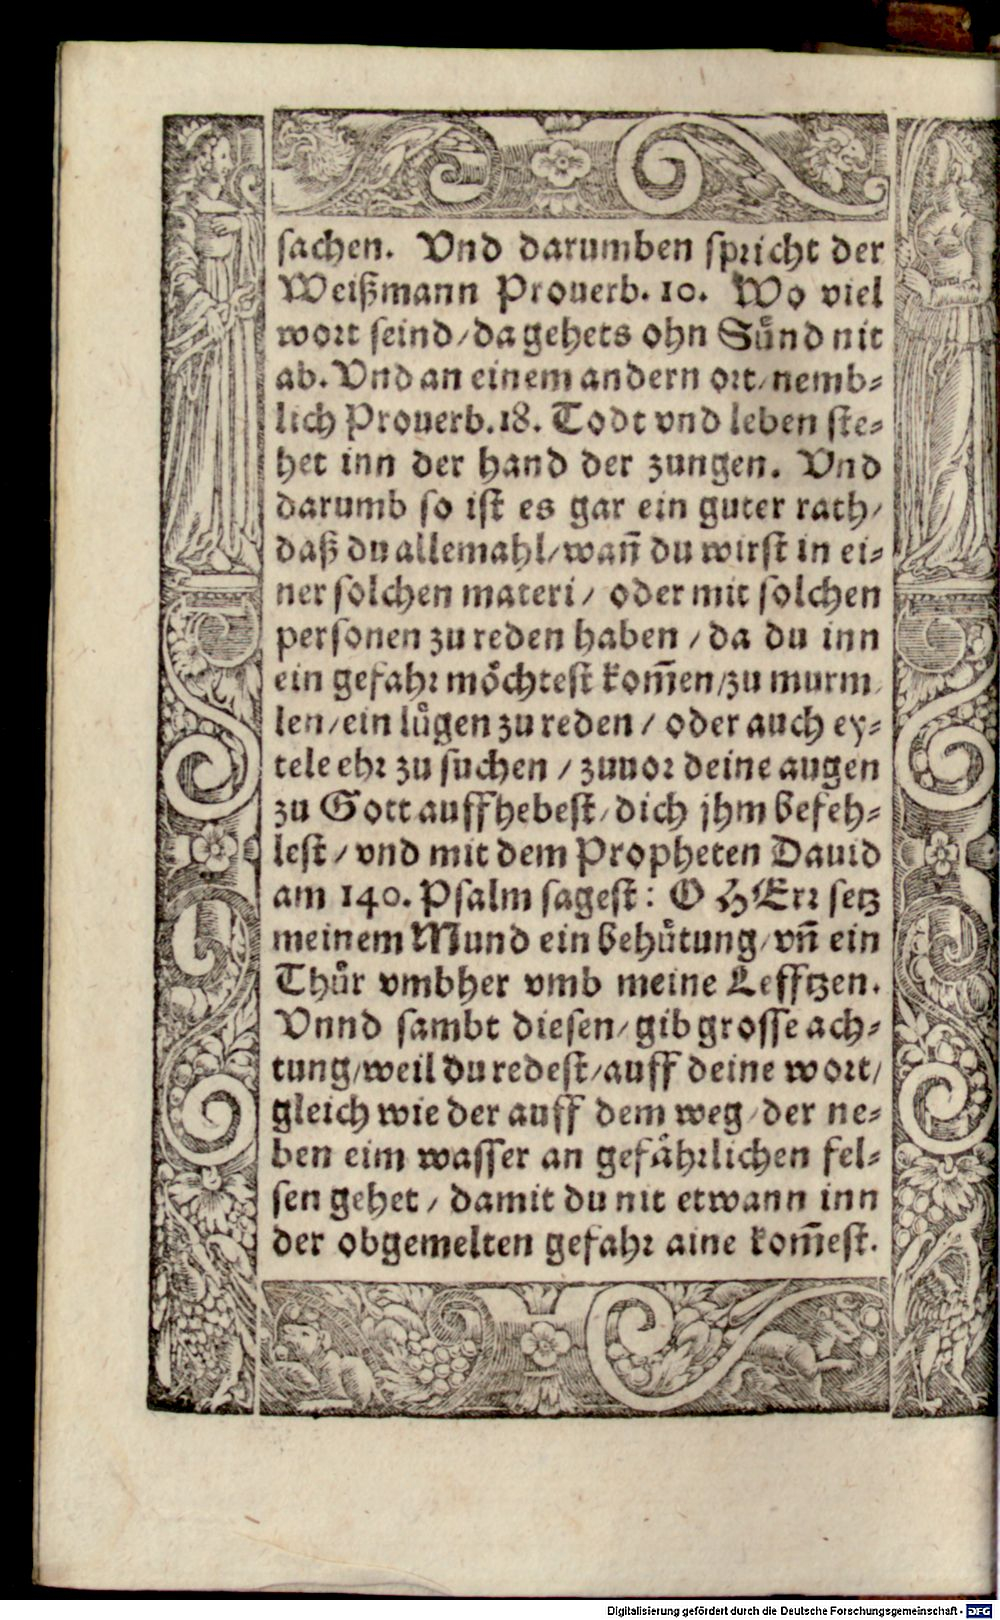 sachen. Vnd darumben spricht der
Weißmann Prouerb. 10. Wo viel
wort seind/da gehets ohn Sünd nit
ab. Vnd an einem andern ort/nemb-
lich Prouerb.18. Todt vnd leben ste-
het inn der hand der zungen. Vnd
darumb so ist es gar ein guter rath/
daß du allemahl/wañ du wirst in ei-
ner solchen materi/ oder mit solchen
personen zu reden haben /da du inn
ein gefahr möchtest kom̃en/zu murm
len/ein lůgen zu reden / oder auch ey-
tele ehr zu suchen / zuuor deine augen
zu Gott auffhebest/dich jhm befeh-
lest/ vnd mit dem Propheten Dauid
am 140. Psalm sagest: O HErr setz
meinem Mund ein behůtung/vñ ein
Thůr vmbher vmb meine Lefftzen.
Vnnd sambt diesen/gib grosse ach-
tung/weil du redest/auff deine wort/
gleich wie der auff dem weg/der ne-
ben eim wasser an gefährlichen fel-
sen gehet/ damit du nit etwann inn
der obgemelten gefahr aine kom̃est.
Digitalisierung gefördert durch die Deutsche Forschungsgemeinschaft - DFG